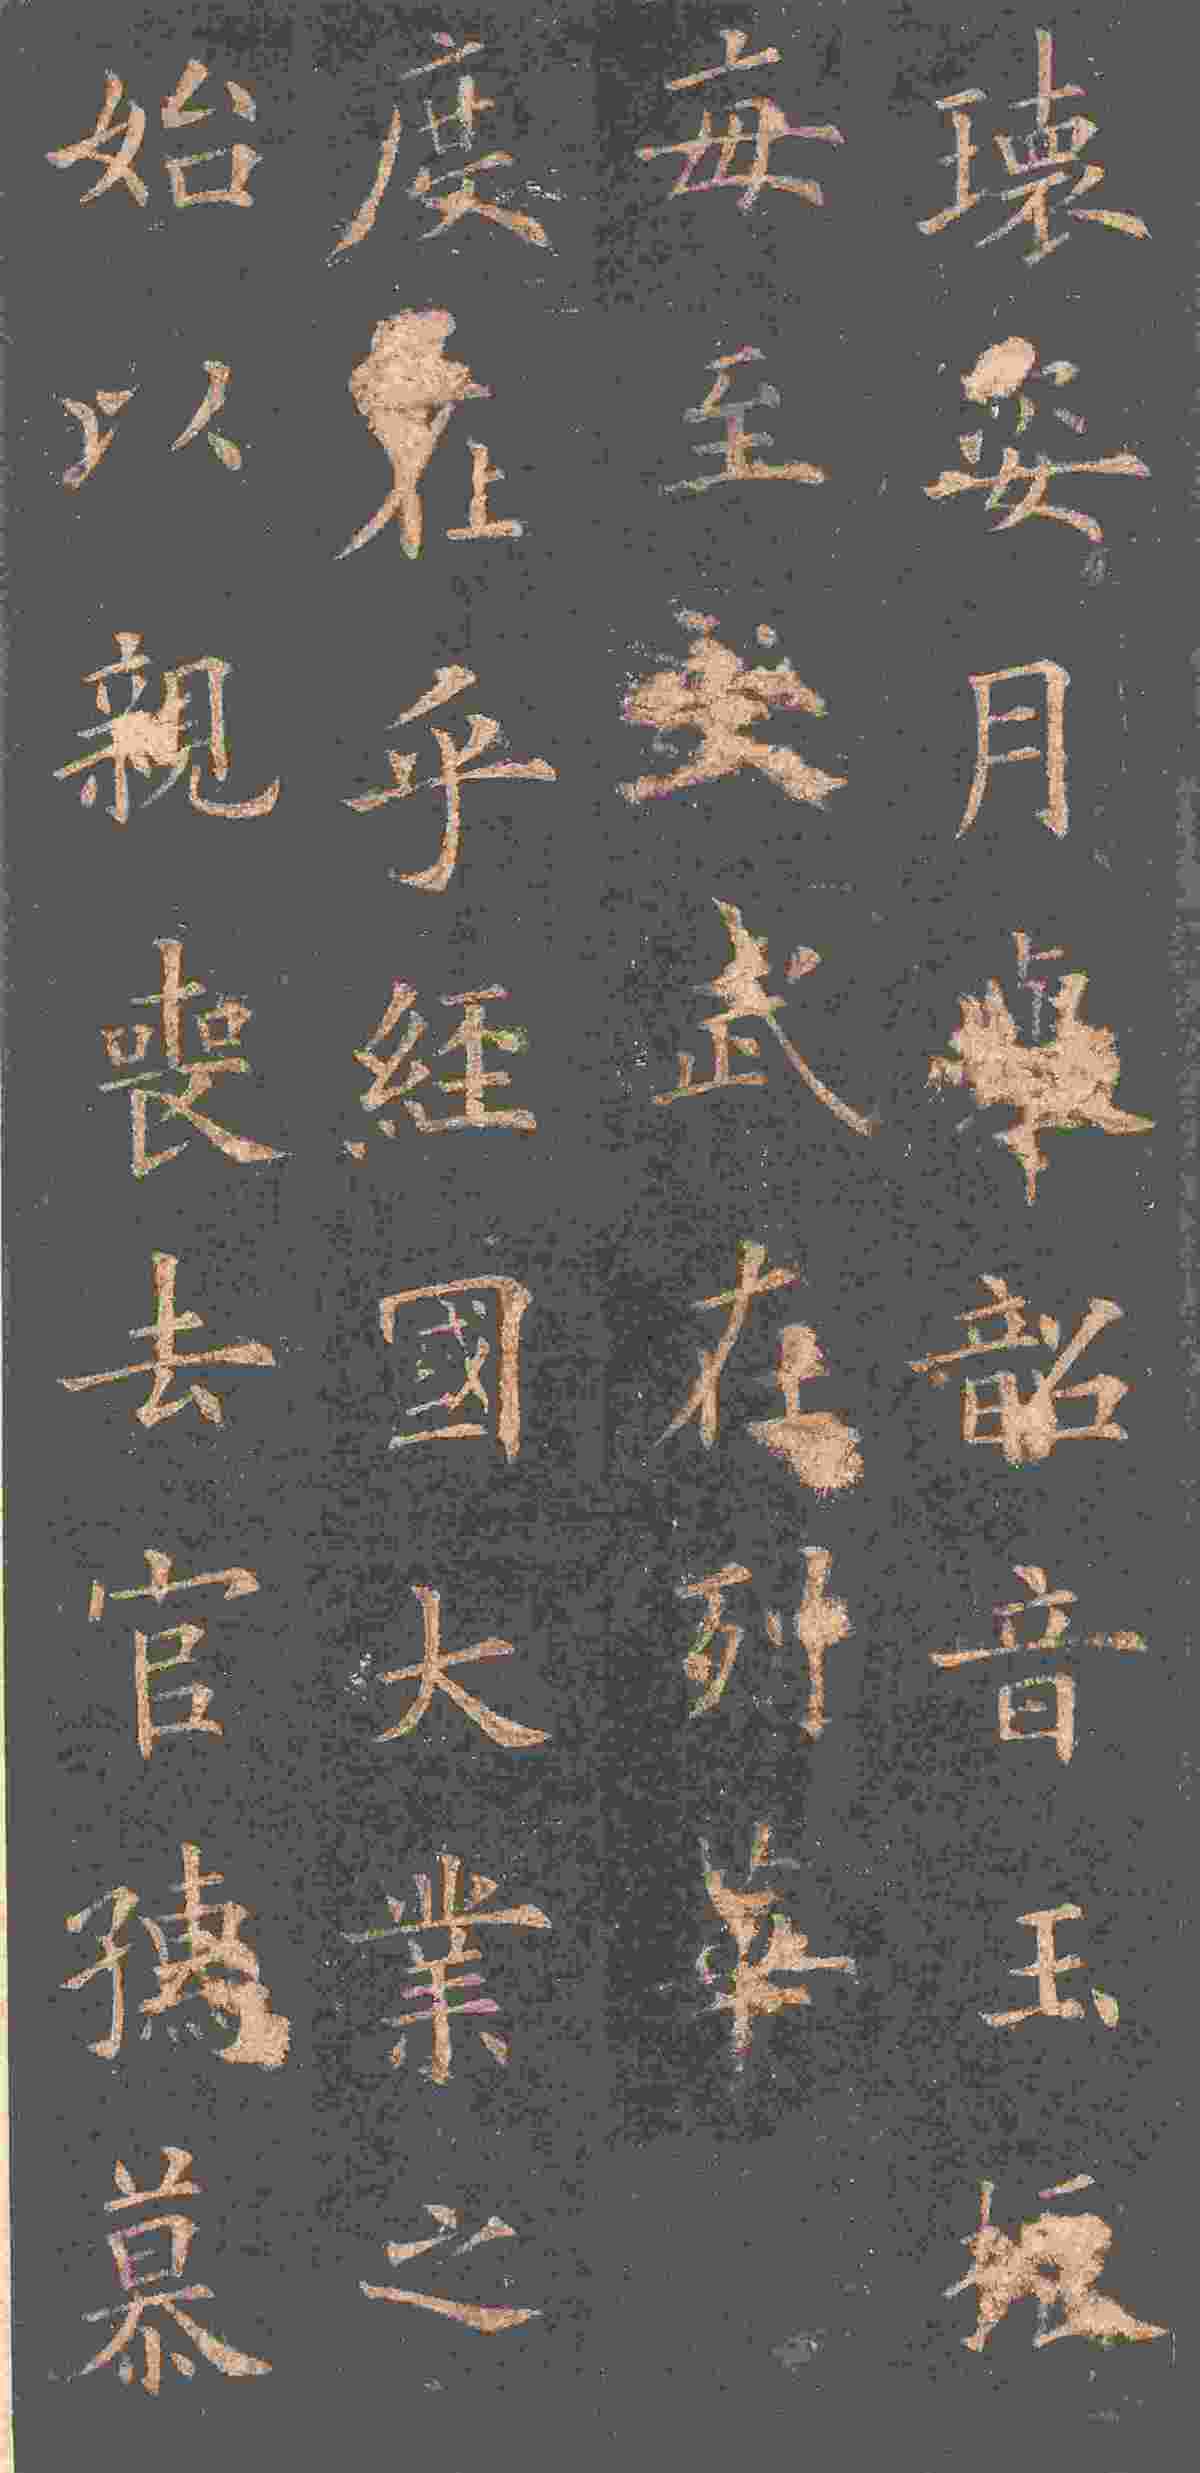 瓌姿月舉韶音玉振
每至文武在列華
度在乎經國大業之
始以親喪去官孺慕